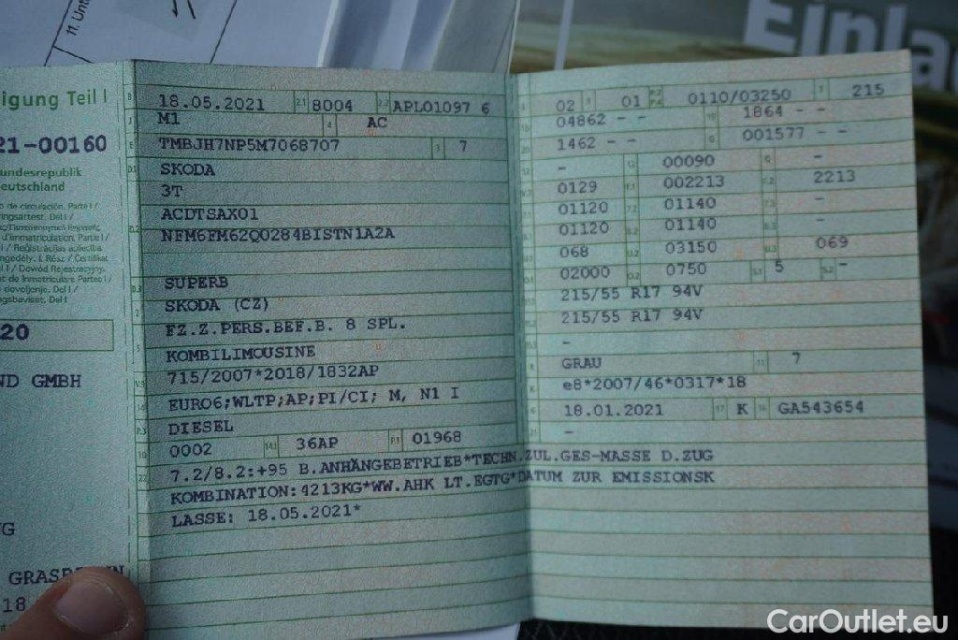 11. Unt
Einla
igung Teil I
21-00160
undesrepublik
eutschland
20
ND GMBH
G
18
B 18.05.2021 2.1 8004 2.2 APL01097 6
J M1 4 AC
E TMBJH7NP5M7068707 3 7
D.1 SKODA
3T
ACDTSAX01
D.2 NFM6FM62Q0284BISTN1A2A
D.3 SUPERB
2 SKODA (CZ)
FZ.Z.PERS.BEF.B. 8 SPL.
5 KOMBILIMOUSINE
V.9 715/2007*2018/1832AP
14 EURO6;WLTP;AP;PI/CI; M, N1 I
P.3 DIESEL
10 0002 14.1 36AP P.1 01968
22 7.2/8.2:+95 B.ANHÄNGEBETRIEB*TECHN.ZUL.GES-MASSE D.ZUG
KOMBINATION:4213KG*WW.AHK LT.EGTG*DATUM ZUR EMISSIONSK
LASSE: 18.05.2021*
02 01 0110/03250 T 215
18 04862 - - 19 1864 - -
20 1462 - - G 001577 - -
12 - 13 00090 Q -
V.7 0129 F.1 002213 F.2 2213
01120 01140 -
01120 01140 -
068 03150 069
02000 0.2 0750 S.1 5 S.2 -
215/55 R17 94V
215/55 R17 94V
-
R GRAU 11 7
K e8*2007/46*0317*18
6 18.01.2021 17 K 16 GA543654
21 -
CarOutlet.eu